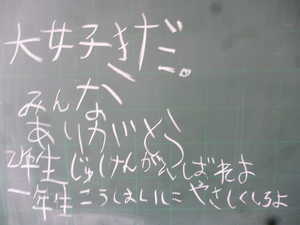 大好きだ。
みんな
ありがとう
2年生 じゅけんがんばれよ
一年生 こうはいに やさしくしろよ